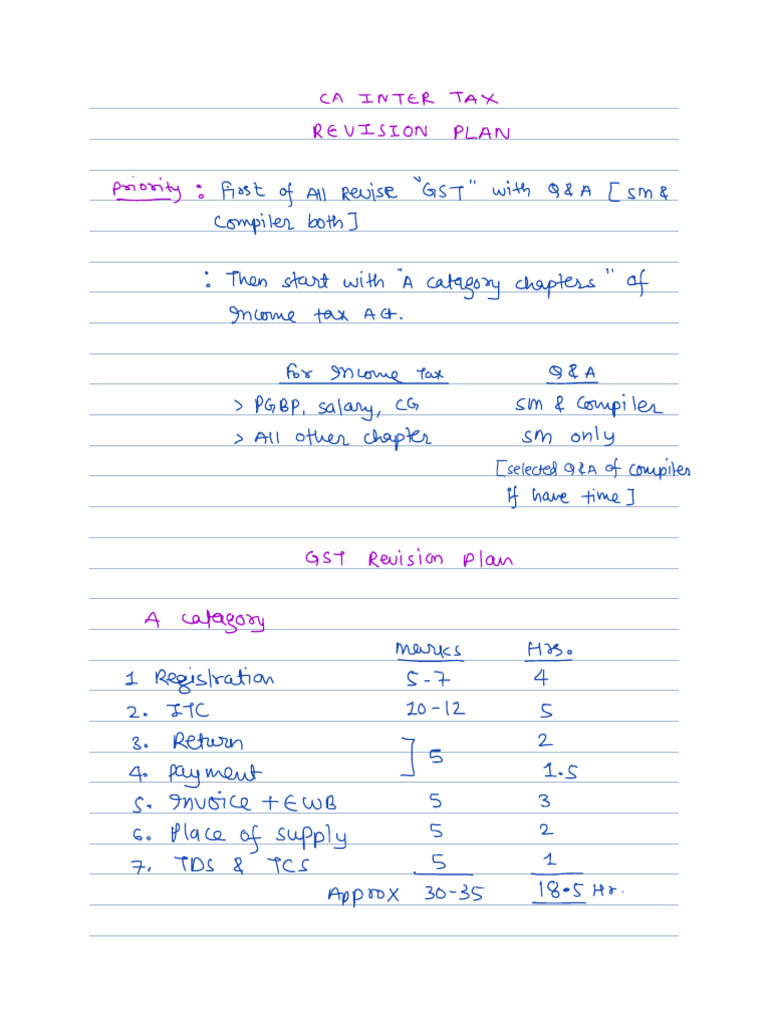 CA INTER TAX
REVISION PLAN
Priority : First of All Revise "GST" with Q&A [SM &
Compiler both]
: Then start with "A catagory chapters" of
Income tax Act.
For Income Tax Q & A
> PGBP, salary, CG SM & Compiler
> All other chapter SM only
[selected Q&A of compiler
if have time]
GST Revision Plan
A catagory
Marks Hrs.
1 Registration 5-7 4
2. ITC 10-12 5
3. Return 2
] 5
4. Payment 1.5
5. Invoice + EWB 5 3
6. Place of supply 5 2
7. TDS & TCS 5 1
Approx 30-35 18.5 Hr.